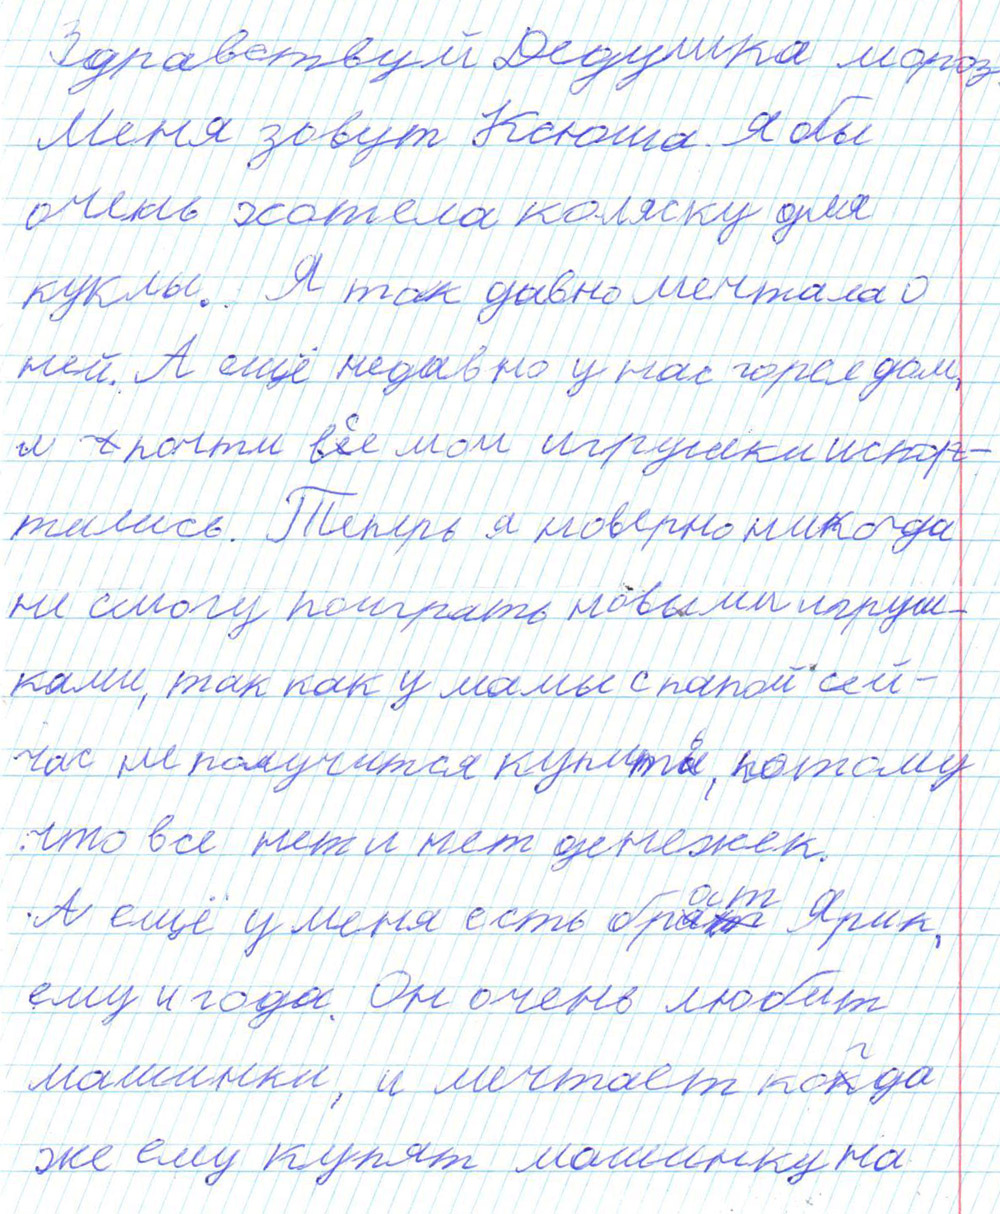 Здравствуй Дедушка мороз.
Меня зовут Ксюша. Я бы
очень хотела коляску для
куклы. Я так давно мечтала о
ней. А ещё недавно у нас горел дом,
и почти все мои игрушки испор-
тились. Теперь я наверно никогда
не смогу поиграть новыми игруш-
ками, так как у мамы с папой сей-
час не получится купить, потому
что все нет и нет денежек.
А ещё у меня есть брат Ярик,
ему 4 года. Он очень любит
машинки, и мечтает когда
же ему купят машинку на